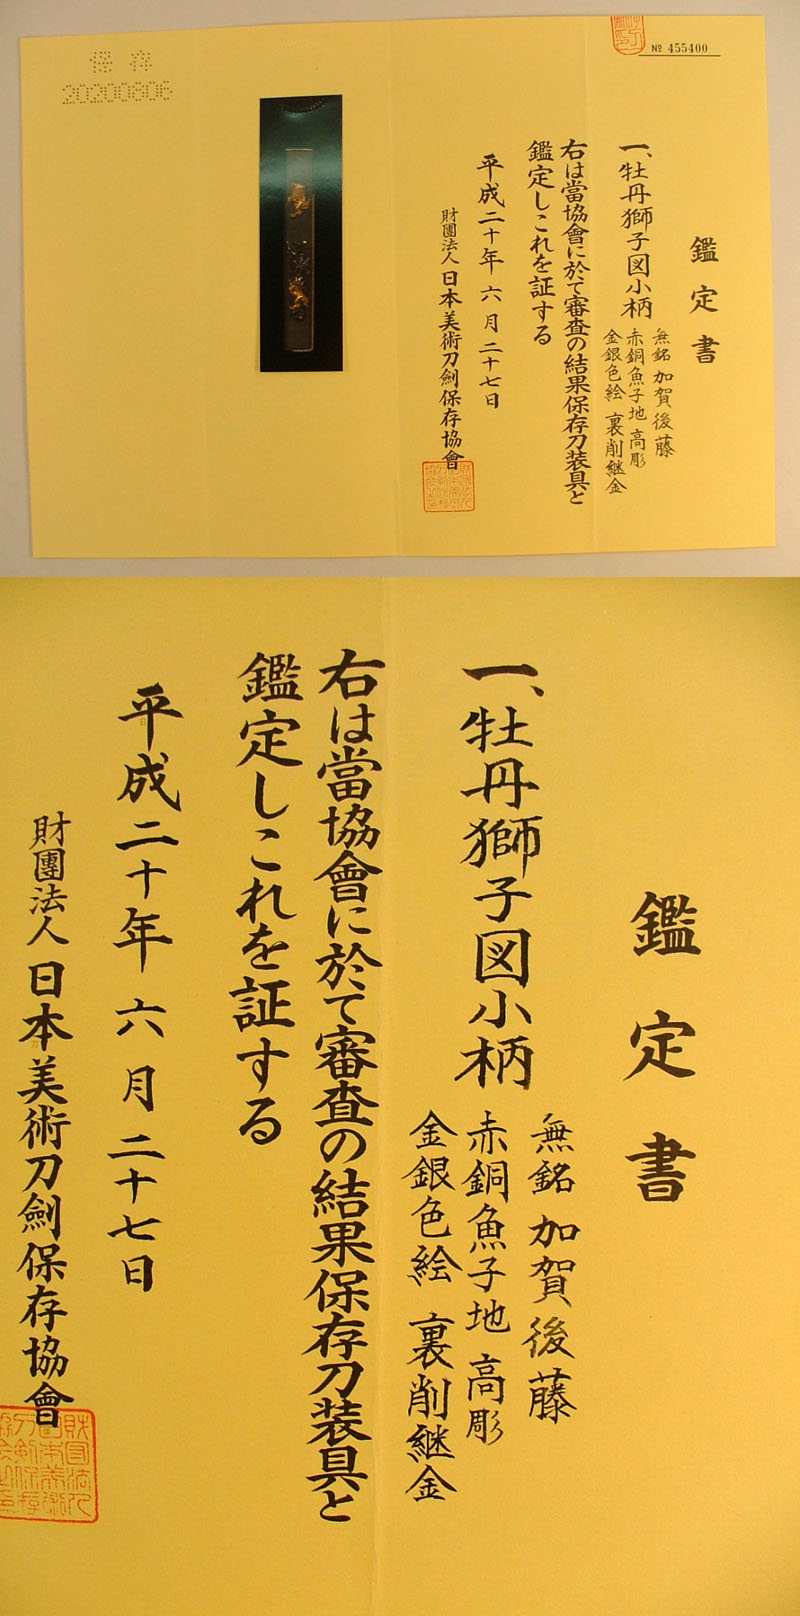 № 455400
鑑定書
一、牡丹獅子図小柄
無銘 加賀後藤
赤銅魚子地 高彫
金銀色絵 裏削継金
右は當協會に於て審査の結果保存刀装具と
鑑定しこれを証する
平成二十年六月二十七日
財團法人日本美術刀劍保存協會
保存
20200806
鑑定書
一、牡丹獅子図小柄
無銘 加賀後藤
赤銅魚子地 高彫
金銀色絵 裏削継金
右は當協會に於て審査の結果保存刀装具と
鑑定しこれを証する
平成二十年六月二十七日
財團法人日本美術刀劍保存協會